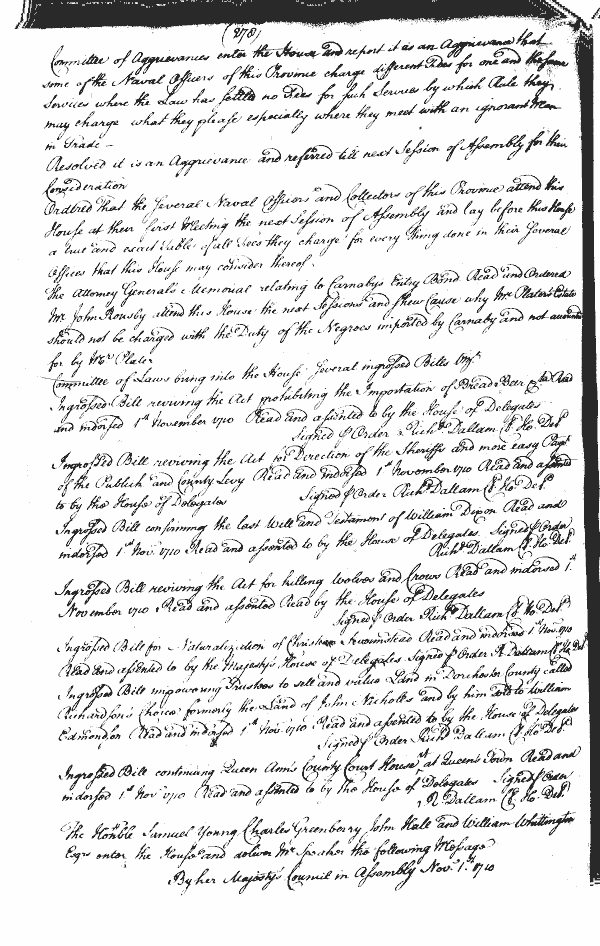 (278)
Committee of Aggrievances enter the House and report it is an Aggrievance that
some of the Naval Officers of this Province charge different Fees for one and the same
Services where the Law has settled no Fees for such Services by which Rule they
may charge what they please especially where they meet with an ignorant Man
in Trade -
Resolved it is an Aggrievance and referred till next Session of Assembly for their
Consideration
Ordered that the several Naval Officers and Collectors of this Province attend this
House at their first Meeting the next Session of Assembly and lay before this House
a true and exact Table of all Fees they charge for every thing done in their several
Offices that this House may consider thereof.
The Attorney General's Memorial relating to Carnaby's Entry Bond Read and Ordered
Mr. John Rousby attend this House the next Sessions and shew Cause why Mr. Plater's Estate
should not be charged with the Duty of the Negroes imported by Carnaby and not accounted
for by Mr. Plater
Committee of Laws bring into the House several ingrossed Bills vizt.
Ingrossed Bill reviving the Act prohibiting the Importation of Bread Beer &ca Read
and indorsed 1st November 1710 Read and assented to by the House of Delegates
Signed p Order Richd. Dallam Cl Ho. Del.
Ingrossed Bill reviving the Act for Direction of the Sheriffs and more easy Paymt
of the Publick and County Levy Read and indorsed 1st November 1710 Read and assented
to by the House of Delegates Signed p Order Richd. Dallam Cl Ho. Del.
Ingrossed Bill confirming the last Will and Testament of William Dixon Read and
indorsed 1st Novr. 1710 Read and assented to by the House of Delegates. Signed p Order
Richd. Dallam Cl Ho. Del.
Ingrossed Bill reviving the Act for killing Wolves and Crows Read and indorsed 1st
November 1710 Read and assented Read by the House of Delegates
Signed p Order Richd. Dallam Cl Ho. Del.
Ingrossed Bill for Naturalization of Christian Read and indorsed 1st Novr. 1710
Read and assented to by the Majesty's House of Delegates Signed p Order R. Dallam Cl Ho. Del.
Ingrossed Bill impowering Trustees to sell and value Land in Dorchester County called
Richardson's Choice formerly the Land of John Nicholls and by him sold to William
Edmondson Read and indorsed 1st Novr. 1710 Read and assented to by the House of Delegates
Signed p Order Richd. Dallam Cl Ho. Del.
Ingrossed Bill continuing Queen Ann's County Court House at Queen's Town Read and
indorsed 1st Novr 1710 Read and assented to by the House of Delegates Signed p Order
R. Dallam Cl Ho. Del.
The Honble Samuel Young Charles Greenberry John Hall and William Whittington
Esqrs enter the House and deliver Mr Speaker the following Message
By her Majesty's Council in Assembly Novr. 1st. 1710